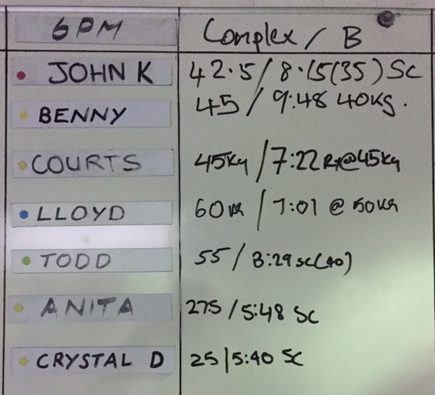 6PM Complex / B
JOHN K 42.5 / 8:15(35) SC
BENNY 45 / 9:48 40kg.
COURTS 45kg / 7:22 Rx@45kg
LLOYD 60kg / 7:01 @ 50kg
TODD 55 / 8:29 SC(40)
ANITA 275 / 5:48 SC
CRYSTAL D 25 | 5:40 SC